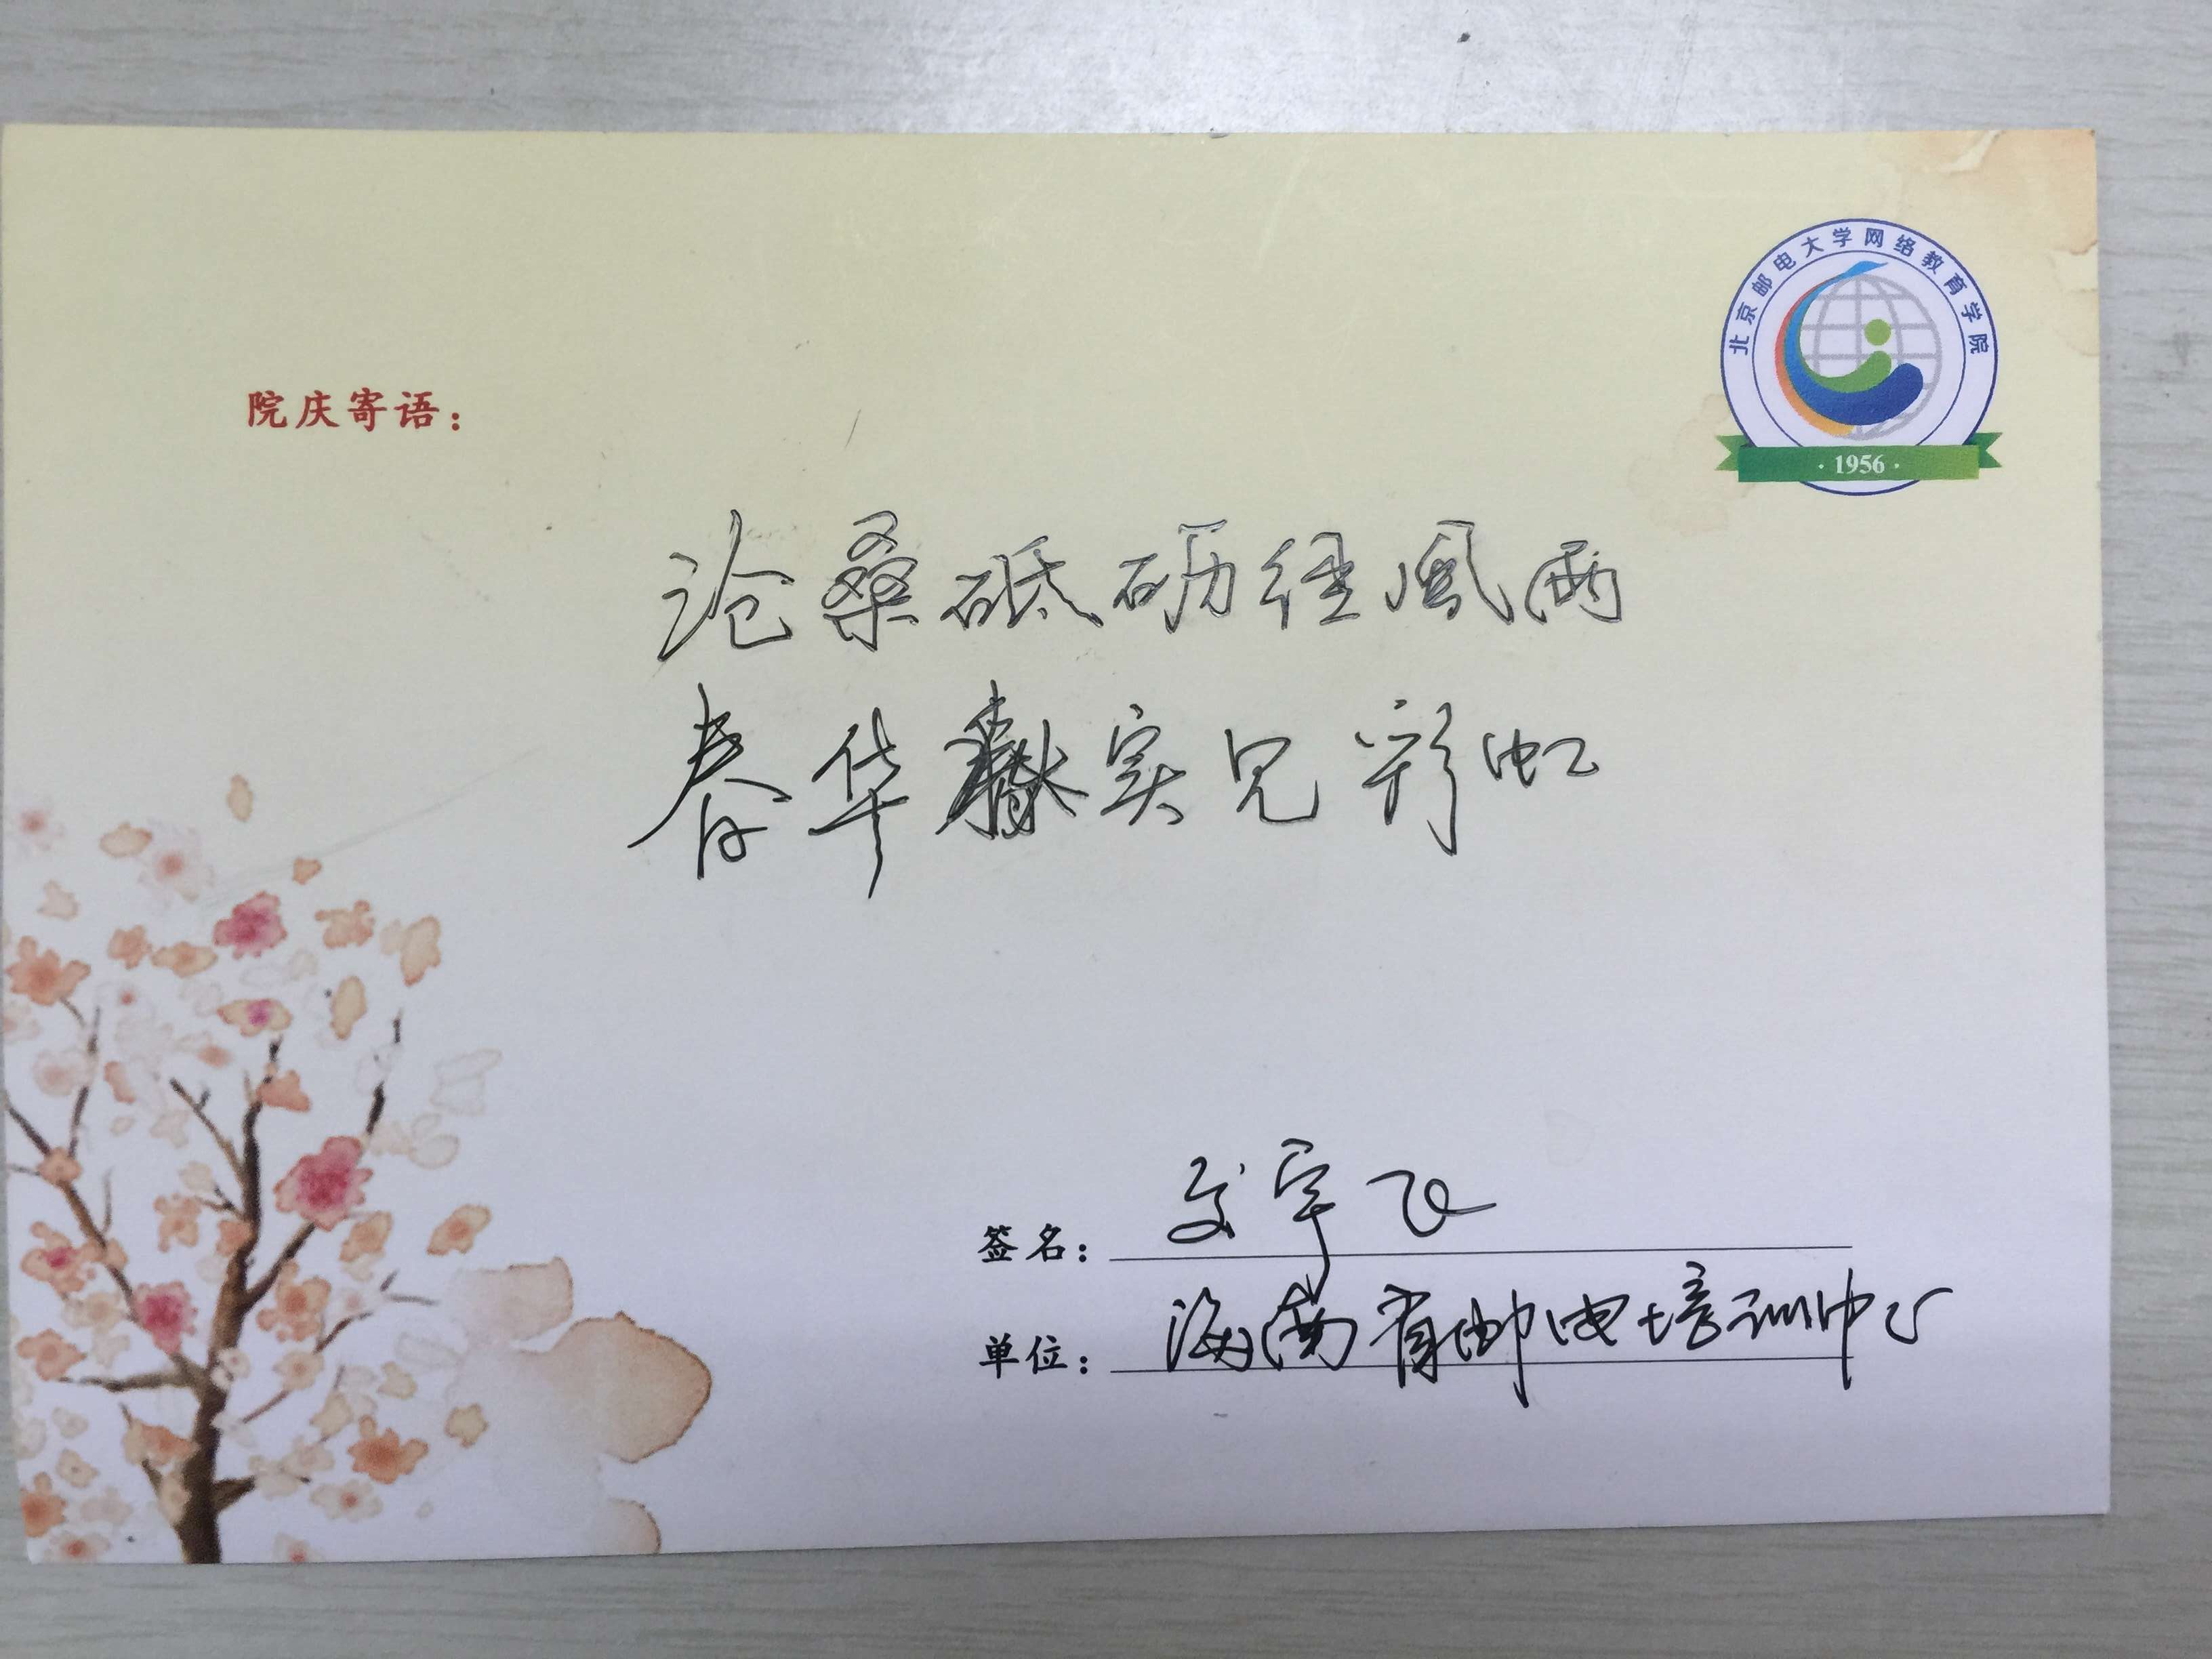 北京邮电大学网络教育学院
· 1956 ·
院庆寄语：
沧桑砥砺经风雨
春华秋实见彩虹
签名：文宇飞
单位：海南省邮电培训中心